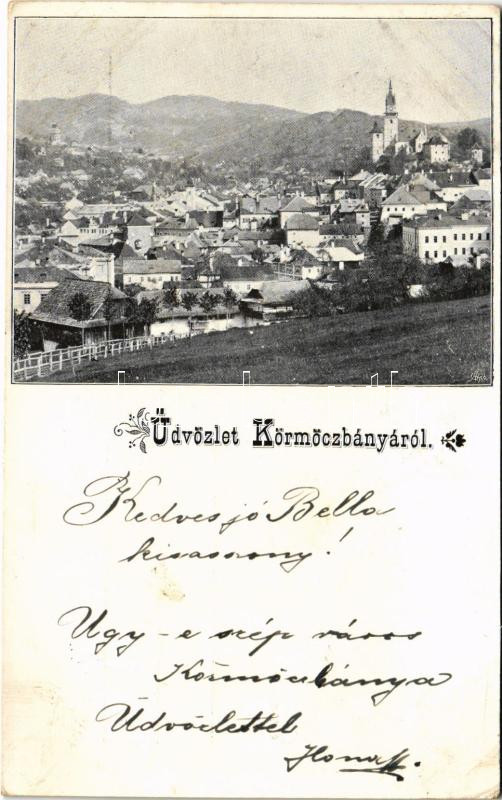 Üdvözlet Körmöczbányáról.
Kedves jó Bella
kisasszony!
Ugy-e szép város
Körmöczbánya
Üdvözlettel
Ilona